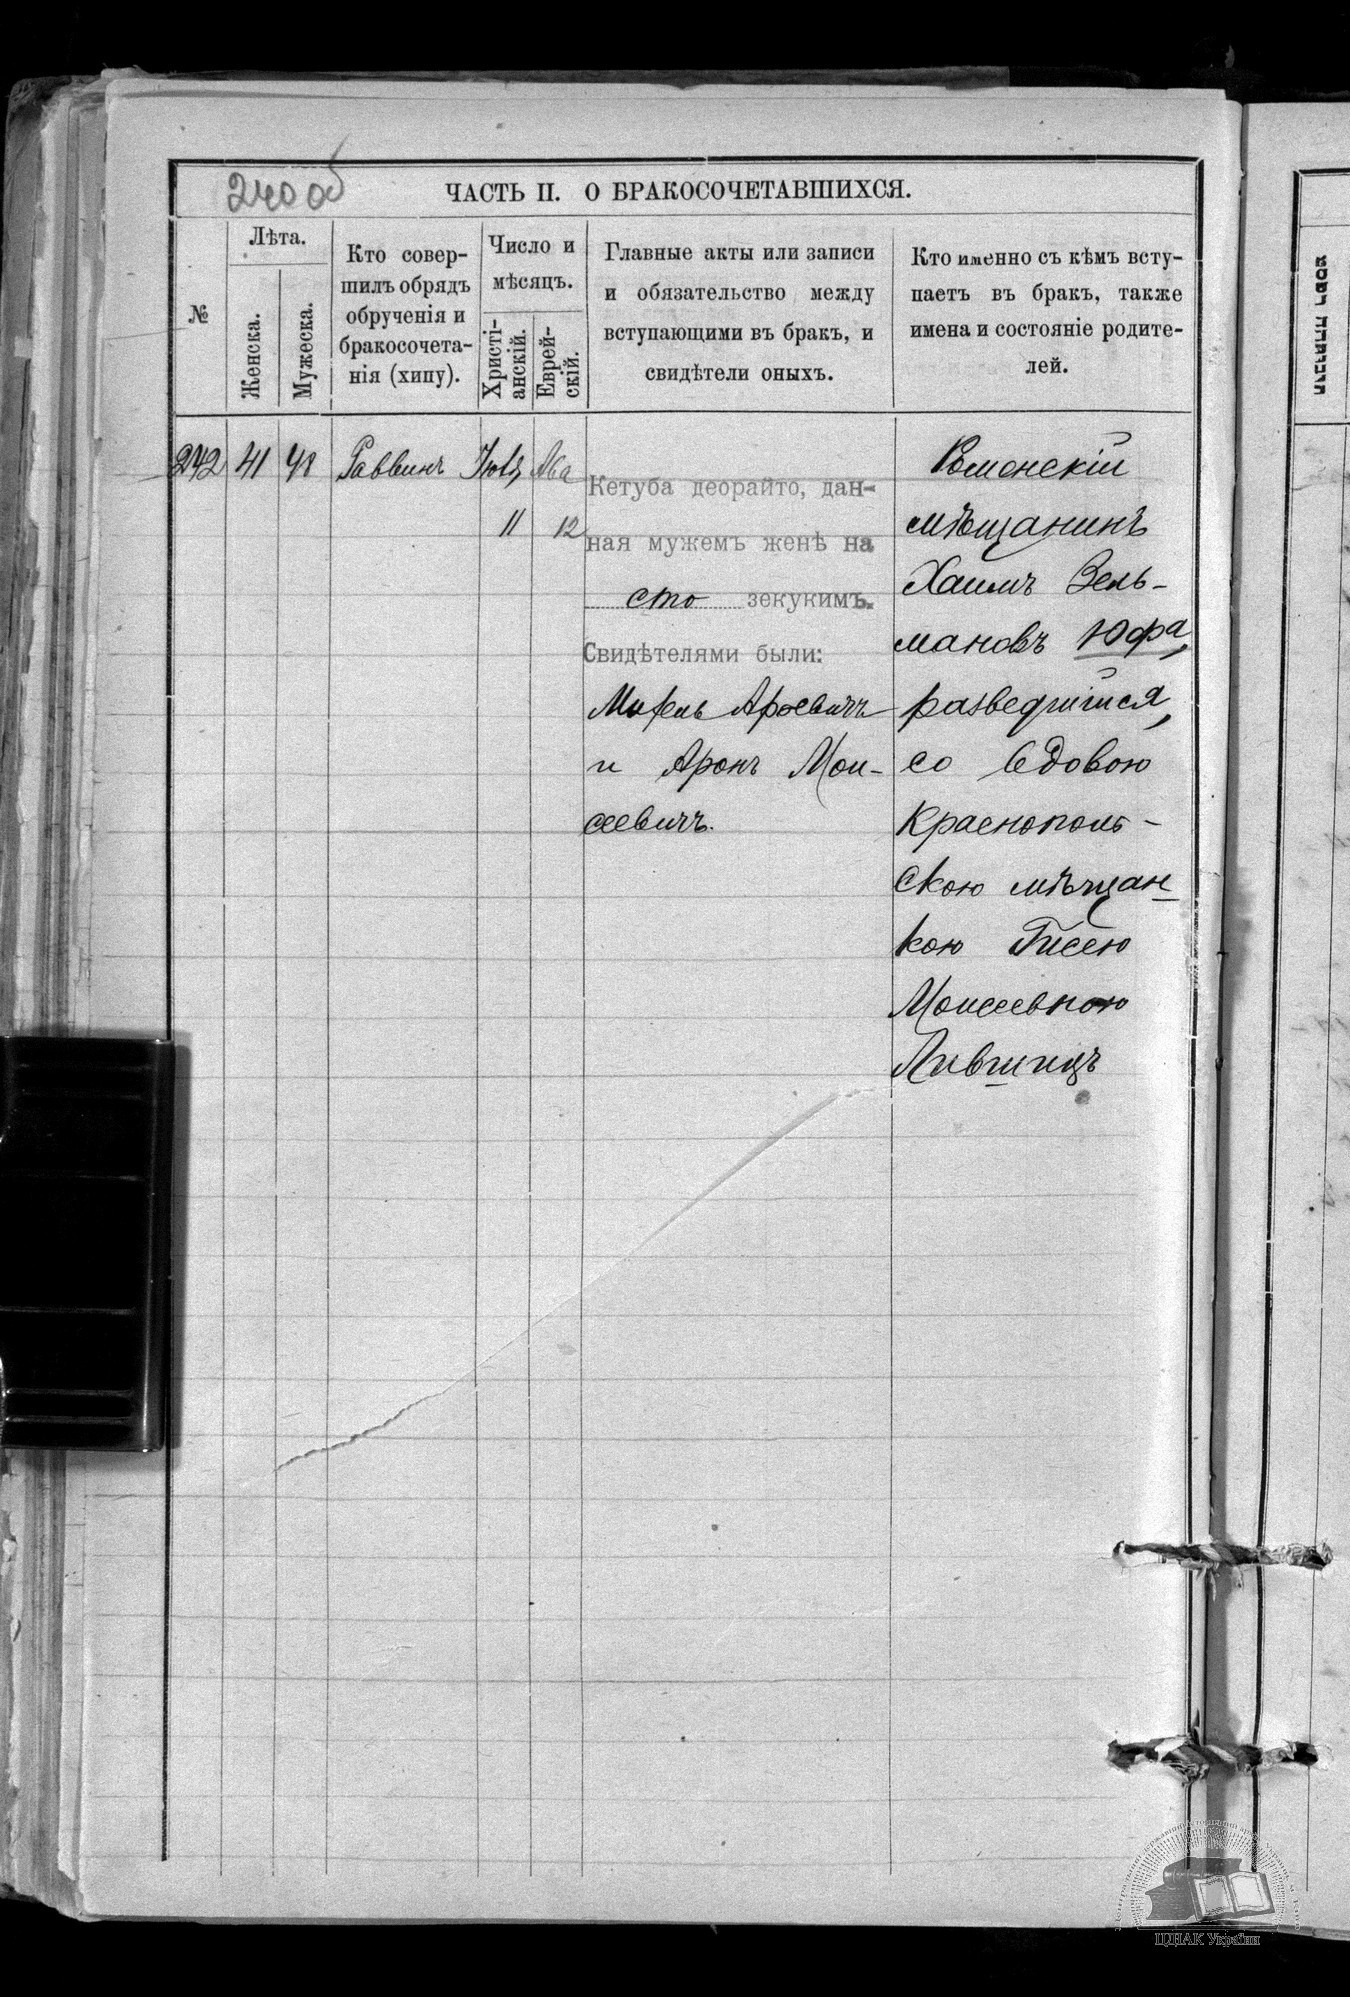 240 об
ЧАСТЬ II. О БРАКОСОЧЕТАВШИХСЯ.
№
Лѣта.
Женска.
Мужеска.
Кто совер-
шилъ обрядъ
обрученія и
бракосочета-
нія (хипу).
Число и
мѣсяцъ.
Христі-
анскій.
Еврей-
скій.
Главные акты или записи
и обязательство между
вступающими въ бракъ, и
свидѣтели оныхъ.
Кто именно съ кѣмъ всту-
паетъ въ бракъ, также
имена и состояніе родите-
лей.
242 41 48 Раввинъ Іюля Ава
11 12
Кетуба деорайто, дан-
ная мужемъ женѣ на
сто зекукимъ.
Свидѣтелями были:
Арьевичъ
и Аронъ Мои-
сеевичъ.
Роменскій
мѣщанинъ
Хаимъ Зель-
мановъ Юфа,
разведшійся,
со вдовою
Краснополь-
скою мѣщан-
кою Гисею
Моисеевною
Лившицъ
ЦДІАК України